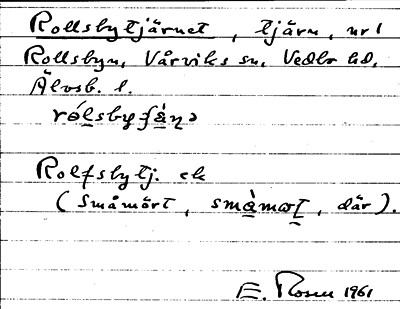 Rollsbytjärnet, tjärn, nr 1
Rollsbyn, Vårviks sn, Vedbo hd,
Älvsb. l.
Rolfsbytj. ek
(Småmört, smàmœrt, där).
E. Rosen 1961